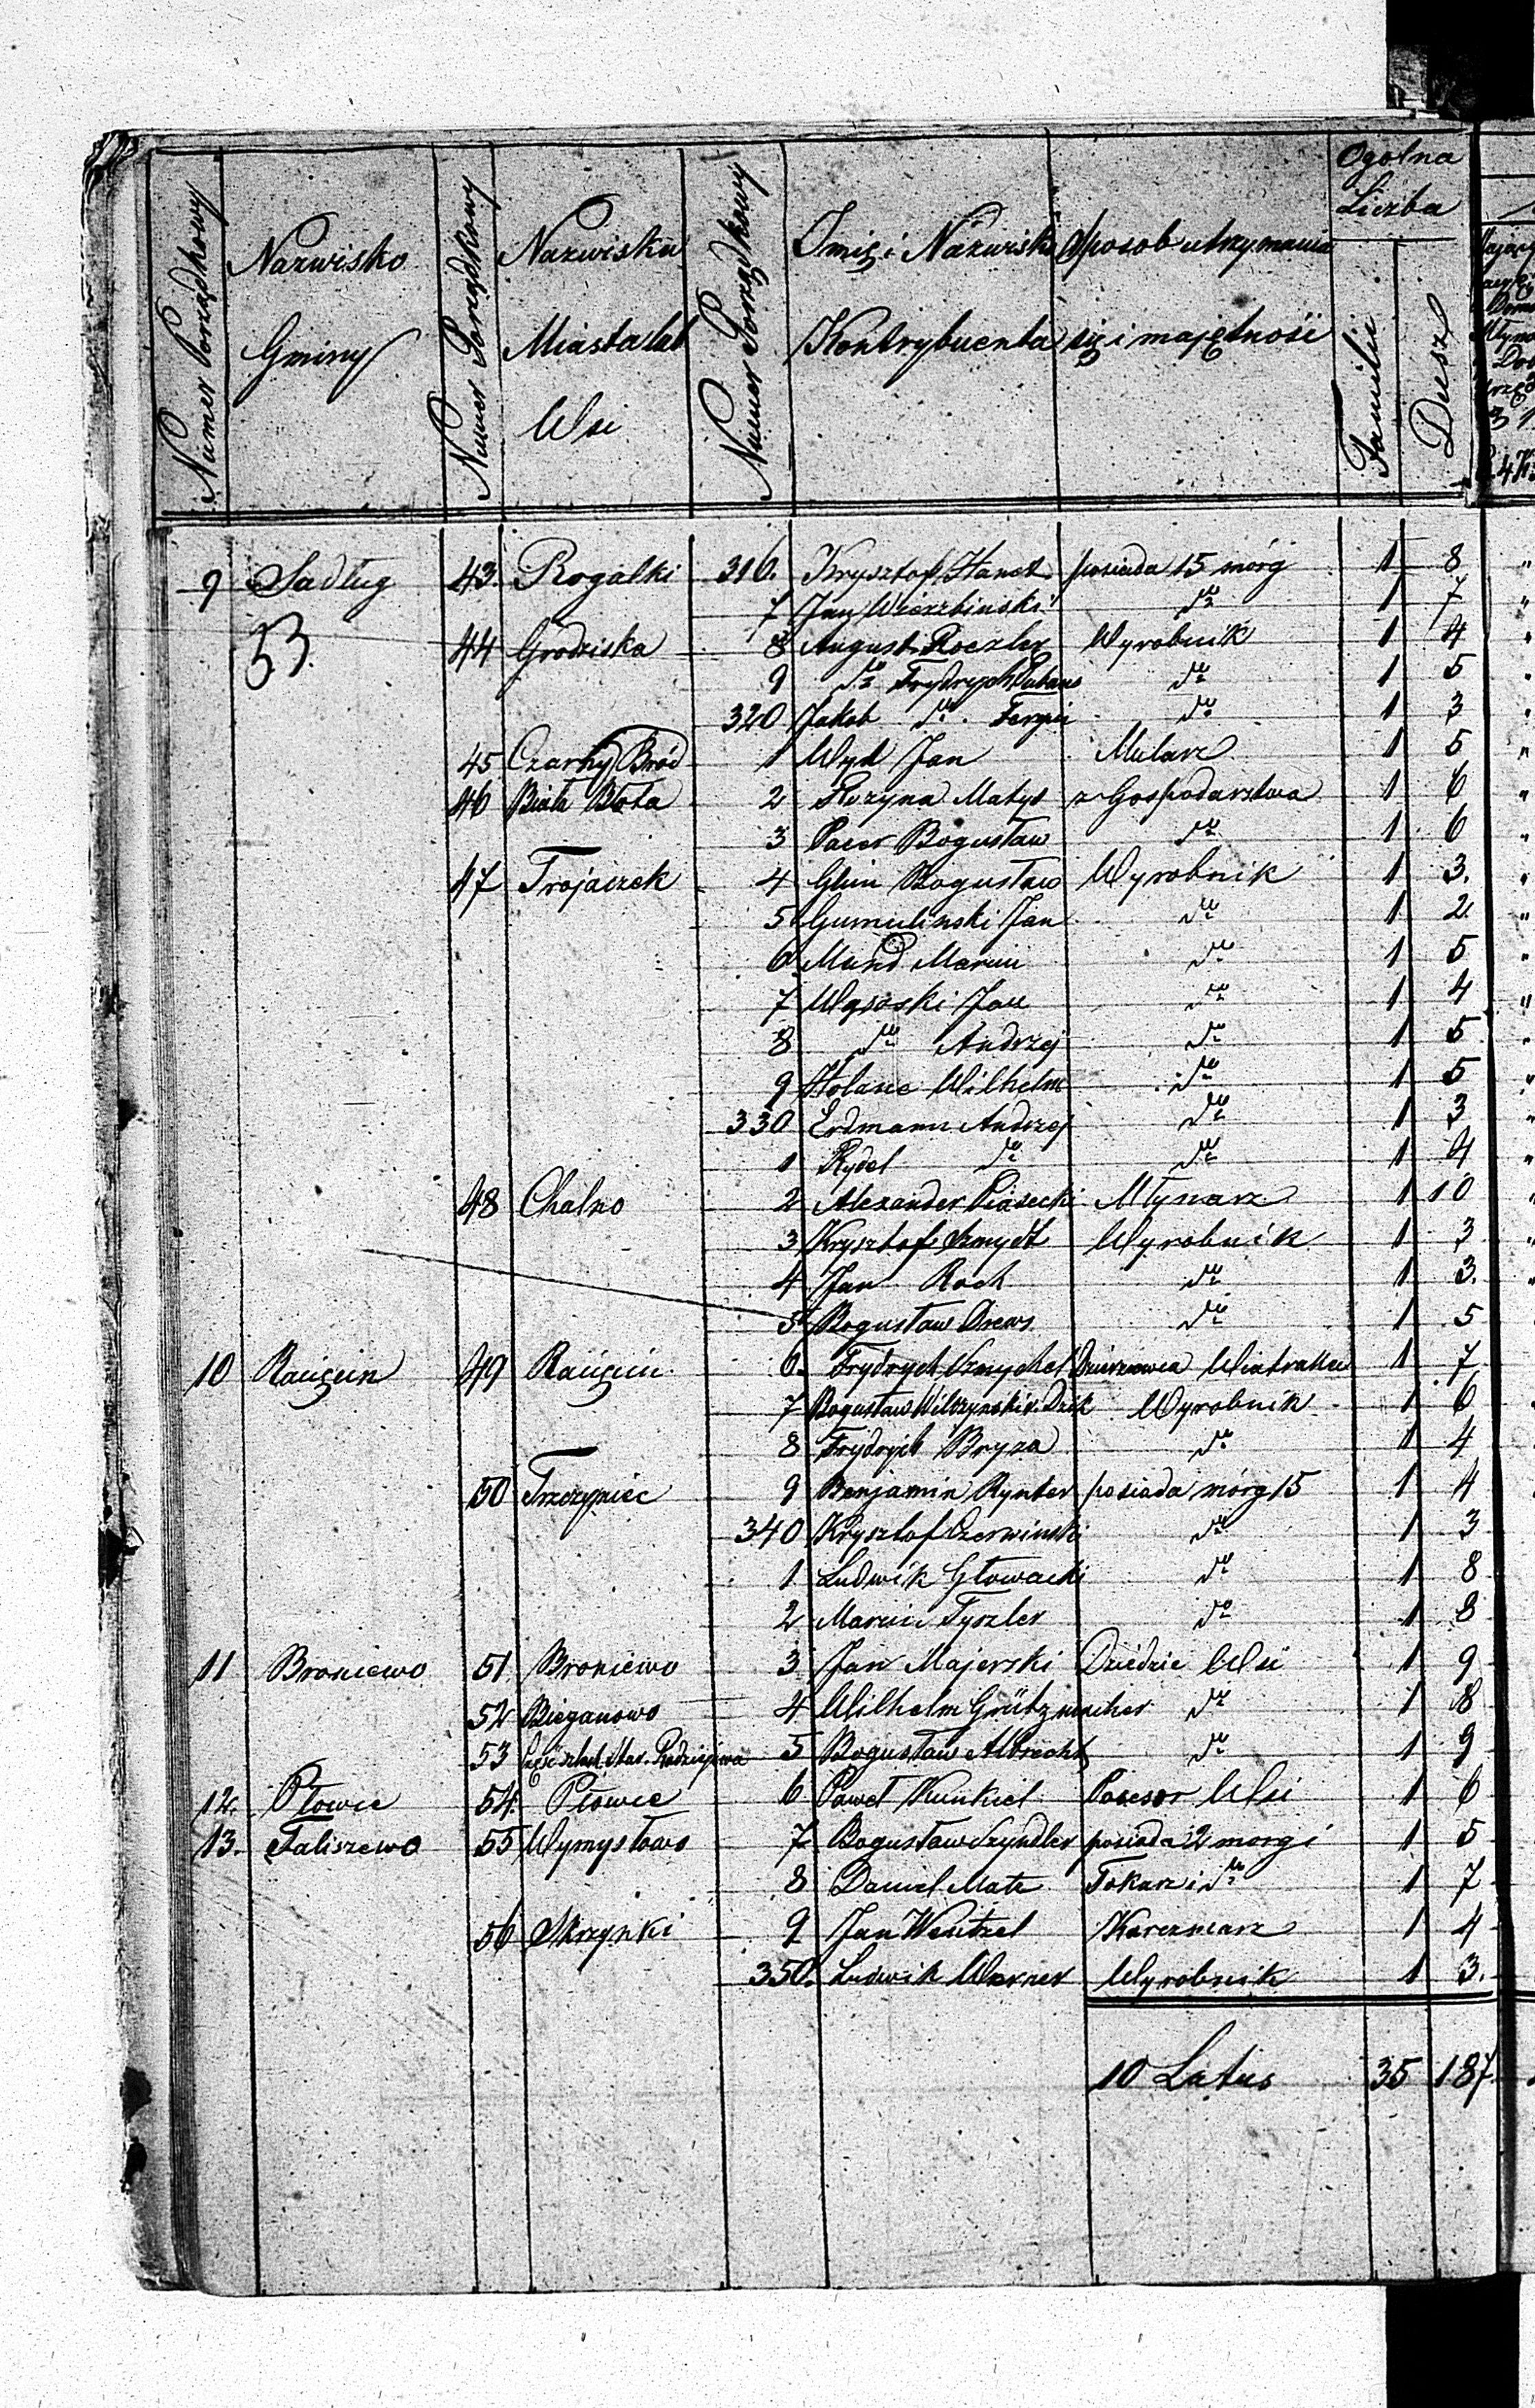 Numer Porządkowy | Nazwisko Gminy | Numer Porządkowy | Nazwiska Miasta lub Wsi | Numer Porządkowy | Imię i Nazwisko Kontrybuenta | Sposob utrzymania się i majętność | Ogolna Liczba | Familii | Dusz
9 Sadług 43. Rogalki 316. Krysztof Hanet posiada 15 mórg 1 8
53. 7 Jan Wierzbinski do 1 7
44 Grodziska 8 August Roezler Wyrobnik 1 4
9 do Frydrych do 1 5
320 Jakob do do 1 3
45 Czarny Bród 1 Wyd Jan Mularz 1 5
46 Białe Błota 2 Matys z Gospodarstwa 1 6
3 Pacer Bogusław do 1 6
47 Trojaczek 4 Glim Bogusław Wyrobnik 1 3.
5 Gumulinski Jan do 1 2.
6 Mund Marcin do 1 5
7 Wysoski Jan do 1 4
8 do Andrzej do 1 5
9 Holanc Wilhelm do 1 5
330 Erdmann Andrzej do 1 3
1 Rydel do do 1 4
48 Chalno 2 Alexander Piasecki Młynarz 1 10
3 Krysztof Szmydt Wyrobnik 1 3
4 Jan Roch do 1 3.
5 Bogusław Drews do 1 5
10 49 6. Frydrych Dzierzawca Wiatraka 1 7
7 Bogusław Wilczynski v. Dzik Wyrobnik 1 6
8 Frydrych Bryza do 1 4
50 9 Benjamin Rynter posiada mórg 15 1 4
340 Krysztof Czerwinski do 1 3
1 Ludwik Głowacki do 1 8
2 Marcin Tyszler do 1 8
11 Broniewo 51. Broniewo 3 Jan Majerski Dziedzic Wsi 1 9
52 Bieganowo 4 Wilhelm Grützmacher do 1 8
53 Radziejewa 5 Bogusław Albrecht do 1 9
12. Płowce 54. Płowce 6 Paweł Kunkiel Posesor Wsi 1 6
13. Faliszewo 55 Wymysłowo 7 Bogusław Szyndler posiada 2 morgi 1 5
8 Daniel Mate Tokarz i do 1 7
56 Skrzynki 9 Jan Wentzel Karczmarz 1 4
350. Ludwik Werner Wyrobnik 1 3.
10 Latus 35 187.